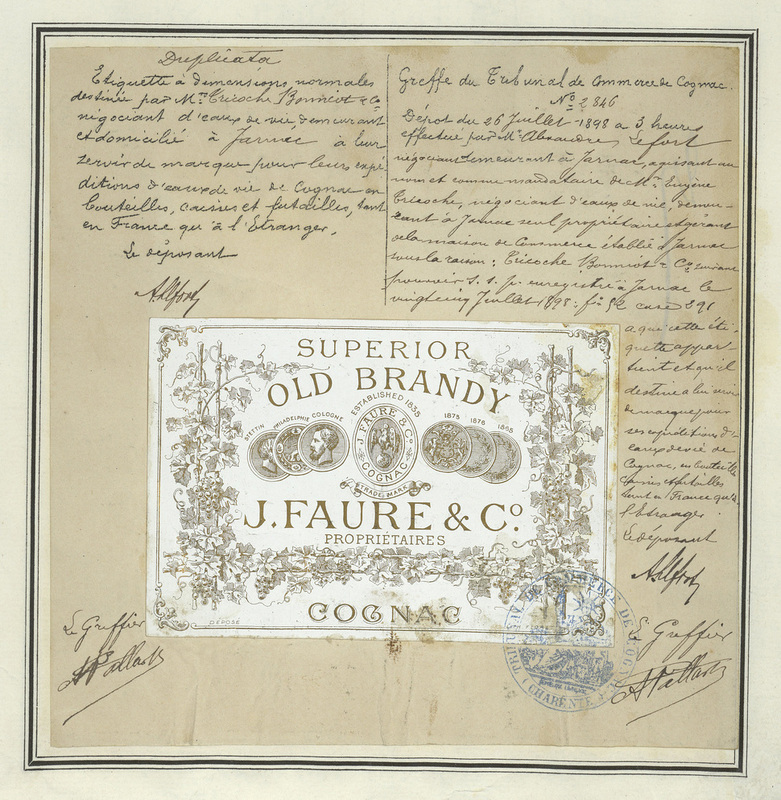 Duplicata
Etiquette à dimensions normales
destinée par Mrs Tricoche Bonniot & Co
négociant d'eaux de vie demeurant
et domicilié à Jarnac à leur
servir de marque pour leurs expé-
ditions d'eaux de vie de Cognac en
bouteilles, caisses et futailles, tant
en France qu'à l'Etranger.
Le déposant
ALefort
Greffe du Tribunal de Commerce de Cognac.
No 2846
Dépot du 26 Juillet 1898 a 3 heures
effectué par Mr Alexandre Lefort
négociant demeurant à Jarnac, agissant au
nom et comme mandataire de Mr Eugène
Tricoche, négociant d'eaux de vie, demeu-
rant à Jarnac seul propriétaire et gérant
de la maison de Commerce établie à Jarnac
sous la raison : Tricoche Bonniot & Co suivant
pouvoir s. s. p. enregistré à Jarnac le
vingt cinq Juillet 1898 : fo 52 case 891
a que cette éti-
quette appar-
tient et qu'il
destine a lui servir
de marque pour
ses expéditions d'
eaux de vie de
Cognac, en bouteilles
caisses et futailles
tant en France qu'à
l'Etranger.
Le déposant
ALefort
SUPERIOR
OLD BRANDY
ESTABLISHED 1835
STETTIN PHILADELPHIE COLOGNE
1875 1876 1865
J. FAURE & Co
COGNAC
TRADE MARK
J. FAURE & Co.
PROPRIÉTAIRES
COGNAC
DÉPOSÉ
TRIBUNAL DE COMMERCE DE COGNAC
(CHARENTE)
Le Greffier
Le Greffier